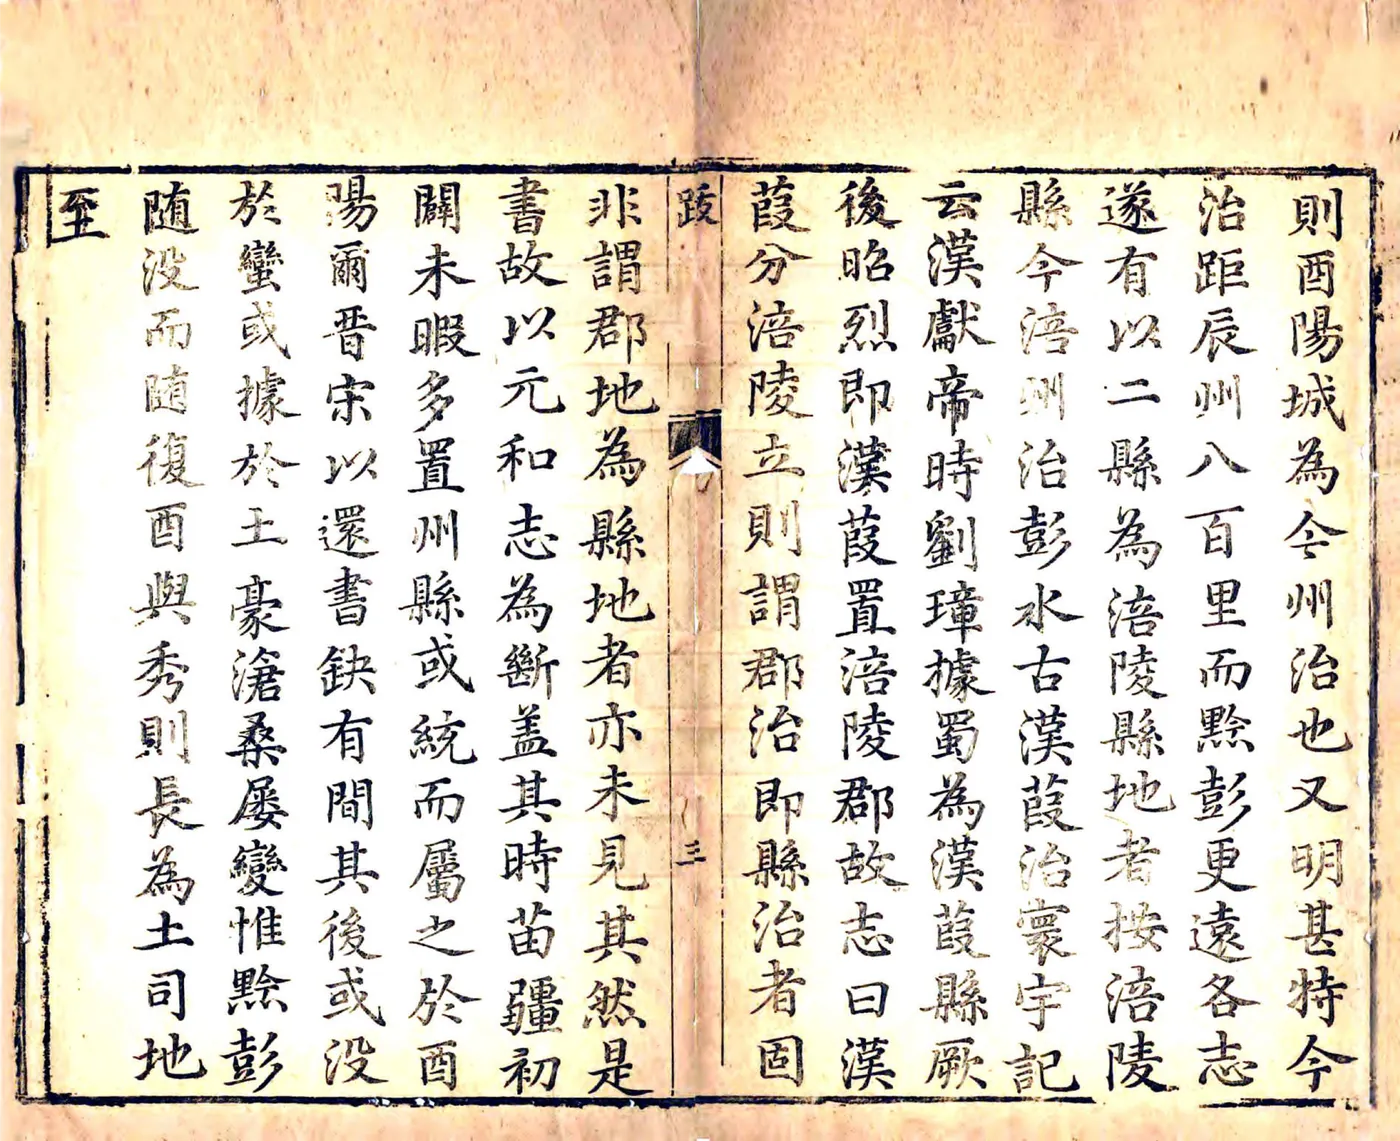 則酉陽城為今州治也又明甚特今
治距辰州八百里而黔彭更遠各志
遂有以二縣為涪陵縣地者按涪陵
縣今涪州治彭水古漢葭治寰宇記
云漢獻帝時劉璋據蜀為漢葭縣厥
後昭烈即漢葭置涪陵郡故志曰漢
葭分涪陵立則謂郡治即縣治者固
跋
三
非謂郡地為縣地者亦未見其然是
書故以元和志為斷盖其時苗疆初
闢未暇多置州縣或統而屬之於酉
陽爾晋宋以還書缺有間其後或没
於蠻或據於土豪滄桑屡變惟黔彭
随没而随復酉與秀則長為土司地
至